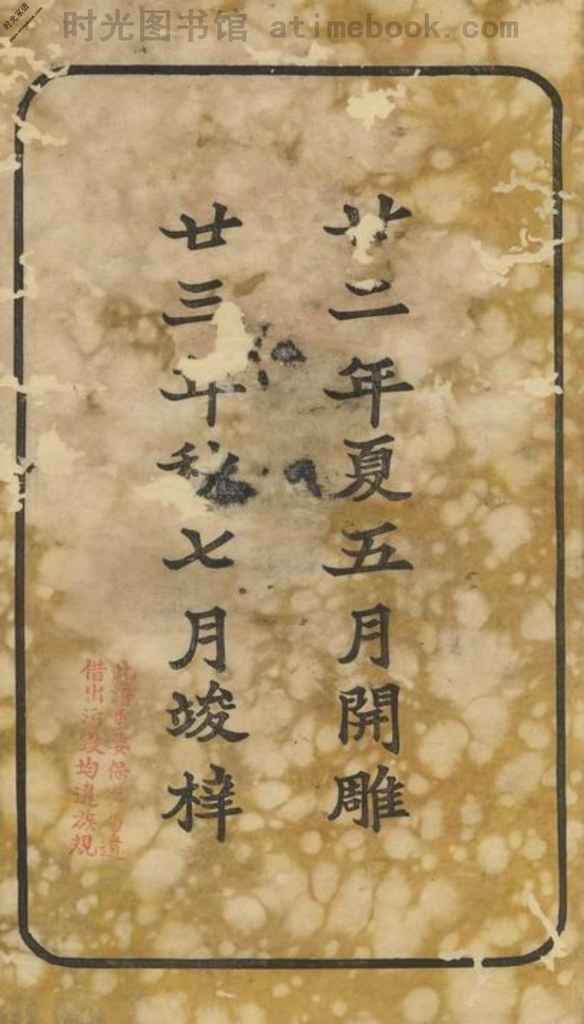 时光图书馆 atimebook.com
廿二年夏五月開雕
廿三年秋七月竣梓
借出污 均遵族規